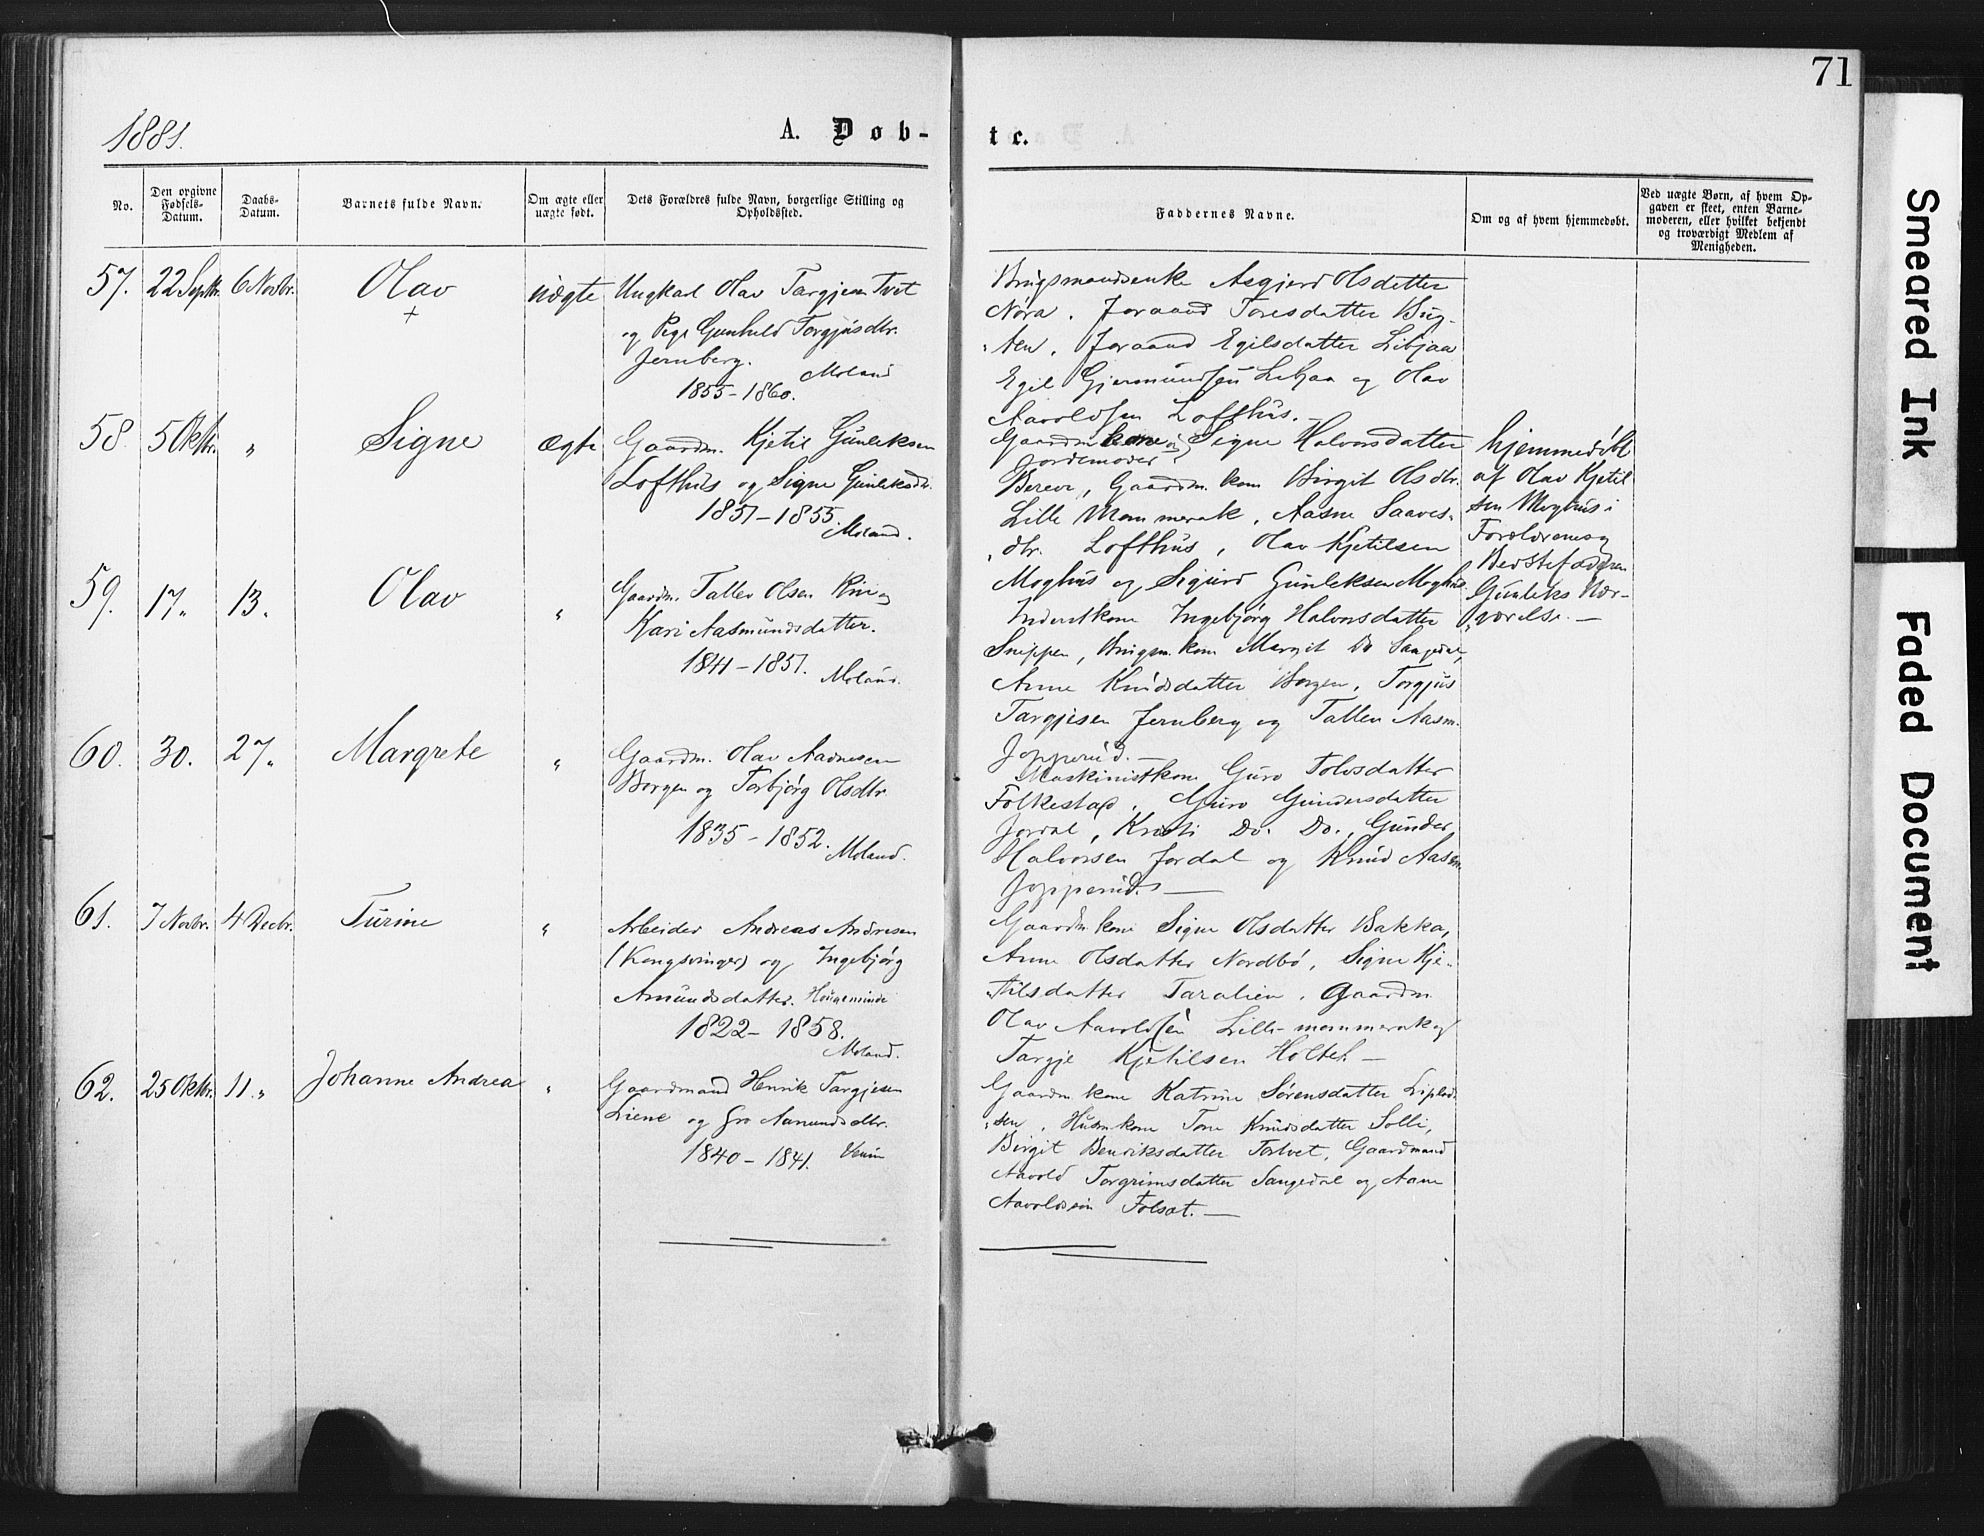 71
1881.
A. Døb-
te.
No.
Den opgivne Fødsels-Datum.
Daabs-Datum.
Barnets fulde Navn.
Om ægte eller uægte født.
Dets Forældres fulde Navn, borgerlige Stilling og Opholdssted.
Faddernes Navne.
Om og af hvem hjemmedøbt.
Ved uægte Børn, af hvem Opgaven er skeet, enten Barnemoderen, eller hvilket bekjendt og troværdigt Medlem af Menigheden.
57. 22 Septbr. 6 Novbr. Olav + uægte
Ungkarl Olav Targjesen Tvet
og Pige Gunhild Torgjusdtr.
Jernberg.
Moland
1855 - 1860.
Brugsmandsenke Asgjerd Olsdetter
Nora. Joraand Toresdatter Byg-
Joraand Egilsdatter Libjaa
Egil Gjermundsen Libjaa og Olav
Aavoldsen Lofthus. -
58. 5 Oktbr. " Signe ægte
Gaardm. Kjetil Gunleksen
Lofthus og Signe Gunleksdtr.
1851 - 1855
Moland.
Gaardm kone og Signe Halvorsdatter
Jordemoder
Gaardm. kone Birgit Olsdtr.
Lille Mommerak, Aasne Saaves-
dtr. Lofthus, Olav Kjetilsen
Moghus og Sigurd Gunleksen Moghus
hjemmedøbt
af Olav Kjetil
sen Moghus i
Forældrenes og
Bedstefaderen
Gunleks Nær-
værelse. -
59. 17. 13. Olav "
Gaardm. Tallev Olsen og
Kari Aasmundsdatter.
1841 - 1851.
Moland.
Inderstkone Ingebjørg Halvorsdatter
Snippen, Brugsm. kone Margit Do Sangedal,
Anne Knudsdatter Borgen, Torgjus
Targjesen Jernberg og Tallev Aasm.
Jopperud. -
60. 30. 27. Margrete "
Gaardm. Olav Aadnesen
Borgen og Torbjørg Olsdtr.
1835 - 1852.
Moland.
Maskinistkone Guro Tolvsdatter
Folkestad, Guro Gundersdatter
Jordal, Kristi Do. Do., Gunder
Halvorsen Jordal og Knud Aasm.
Jopperud. -
61. 7 Novbr. 4 Decbr. Turine "
Arbeider Andreas Andresen
(Kongsvinger) og Ingebjørg
Amundsdatter.
1822 - 1858.
Moland.
Gaardm kone Signe Olsdatter Bakka,
Anne Olsdatter Nordbø, Signe Kje-
tilsdatter Taralien, Gaardm
Olav Aavoldsen Lille-mommerak og
Targje Kjetilsen Holtet. -
62. 25 Oktbr. 11. " Johanne Andrea "
Gaardmand Henrik Targjesen
Liene og Gro Aanundsdtr.
1840 - 1841.
Gaardm kone Katrine Sørensdatter
Husm.kone Tone Knudsdatter Solli,
Birgit Henriksdatter Tortvet, Gaardmand
Aavold Torgrimsdatter Sangedal og
Aavoldsen Folsæt. -
Smeared Ink
Faded Document